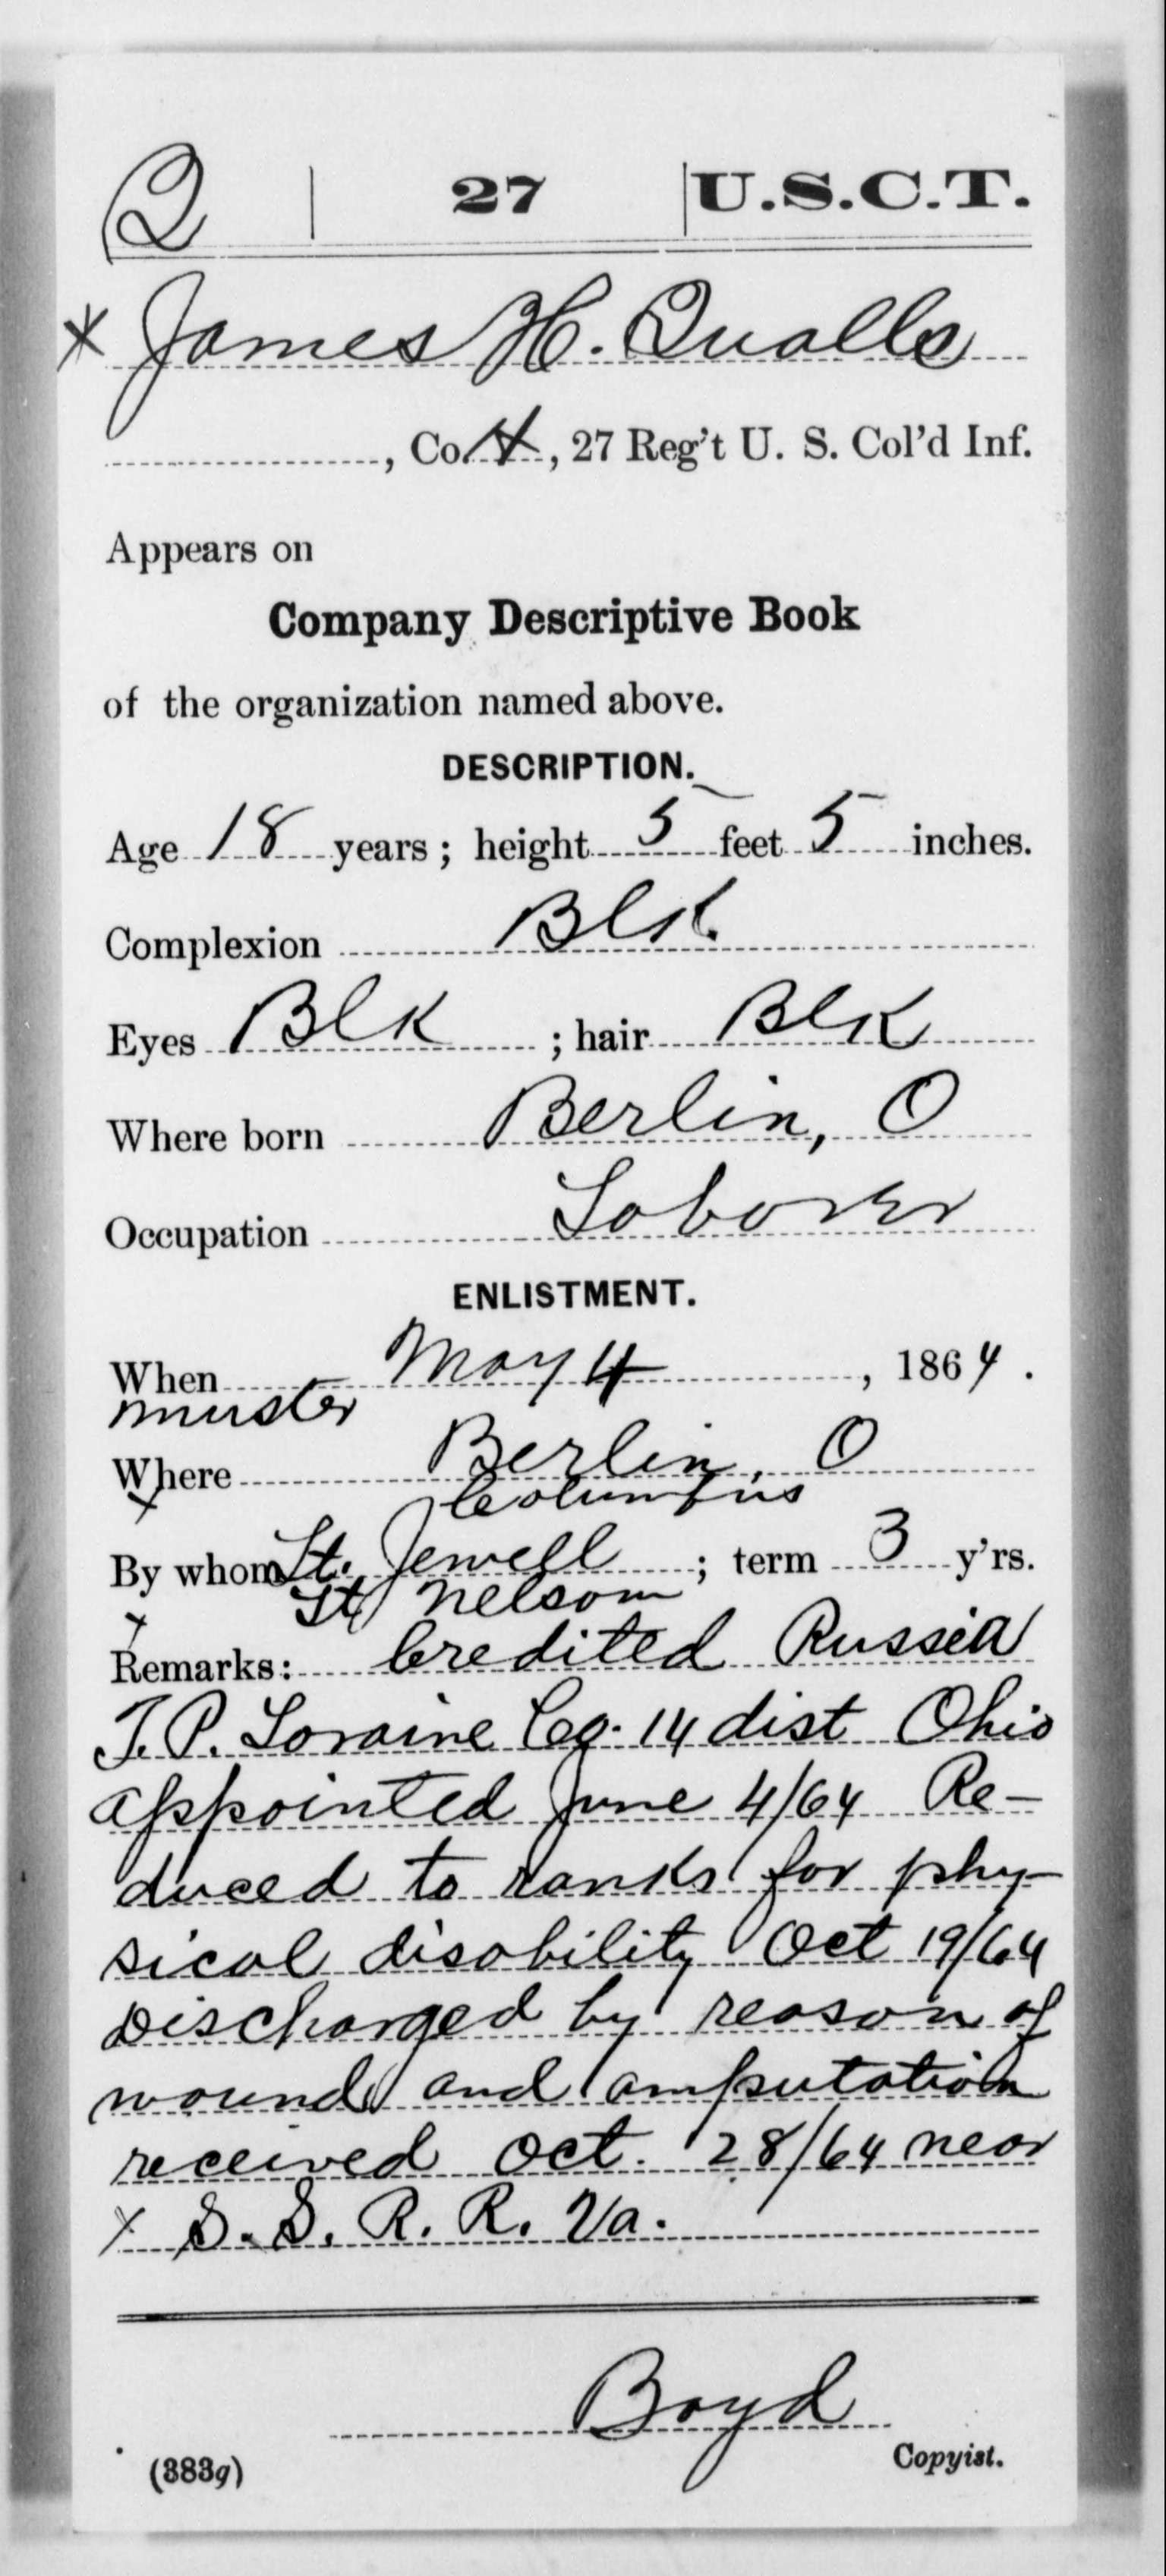 Q | 27 | U.S.C.T.
X James H. Qualls
, Co. , 27 Reg't U. S. Col'd Inf.
Appears on
Company Descriptive Book
of the organization named above.
DESCRIPTION.
Age 18 years; height 5 feet 5 inches.
Complexion Blk.
Eyes Blk ; hair Blk
Where born Berlin, O
Occupation Laborer
ENLISTMENT.
When May 4, 1864.
muster
Where Berlin, O
x Columbus
By whom Lt. Jewell ; term 3 y'rs.
Lt Nelson
x
Remarks: Credited Russia
T.P. Loraine Co. 14 dist Ohio
appointed June 4/64 Re-
duced to ranks for phy-
sical disability Oct 19/64
Discharged by reason of
wound and amputation
received Oct. 28/64 near
x S.S. R. R. Va.
Boyd
Copyist.
(383g)